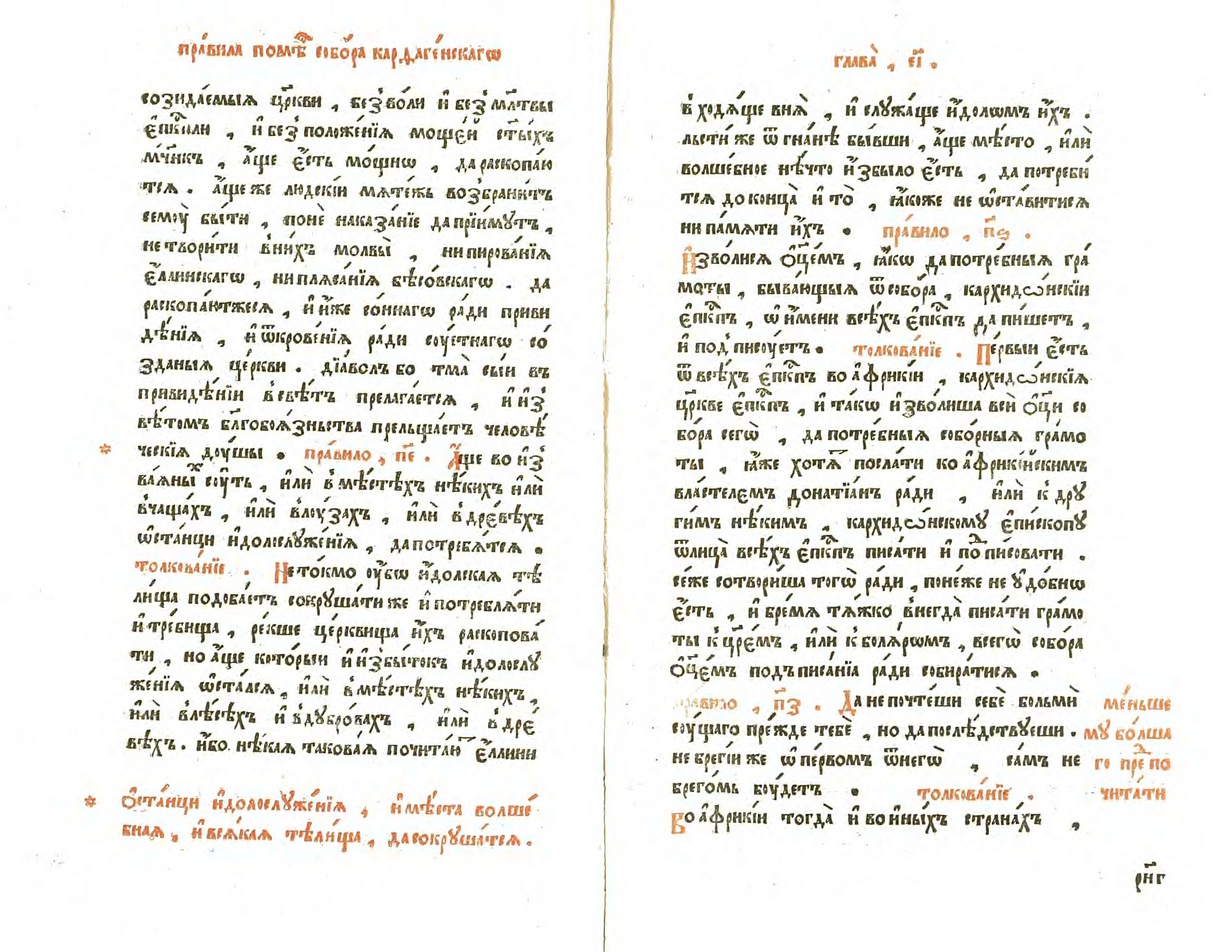 пра́вила помѣ́стⷩ собо́ра карѳаге́нскагѡ
созида́емыѧ цр҃кви , без̾во́ли и҆ без̾ мл҃твы
є҆пⷭ҇кпли , и҆ без̾ положе́нїѧ моще́й ст҃ы́хъ
мч҃нкъ , а҆́ще є҆́сть мо́щнѡ , да раскопа́ю
тсѧ . а҆́ще же лю́дскїи мѧте́жь возбрани́тъ
семꙋ̀ бы́ти , понѐ наказа́нїе да прїи́мꙋтъ ,
не твори́ти в̾ни́хъ молвы̀ , ни пирова́нїѧ
є҆́ллинскагѡ , ни плѧса́нїѧ бѣсо́вскагѡ . да
раскопа́ютжесѧ , и҆ и҆́же со́ннагѡ ра́ди приви
дѣ́нїѧ , и҆ ѿкрове́нїѧ ра́ди сꙋ́етнагѡ со́
зданыѧ це́ркви . дїа́волъ бо тма̀ сы́и въ
привидѣ́нїи в̾свѣ́тъ прелага́етсѧ , и҆ и҆з̾
вѣ́томъ бл҃гобоѧ́зньства прельща́етъ человѣ́
ческїѧ дꙋ́шы . пра́вило , п҃е . А҆́ще во и҆з̾
ваѧ́ныⷯ сꙋ́ть , и҆лѝ в̾мѣ́стѣхъ нѣ́кихъ и҆лѝ
в̾ча́щахъ , и҆лѝ в̾лꙋ́захъ , и҆лѝ в̾дре́вѣхъ
ѡ҆ста́нци и҆долослꙋже́нїѧ , да потребѧ́тсѧ .
толкова́нїе . Не то́кмо ᲂу҆́бѡ и҆́долскаѧ тѣ
ли́ща подоба́етъ сокрꙋша́ти же и҆ потреблѧ́ти
и҆ тре́бища , ре́кше це́рквища и҆́хъ раскопова́
ти , но а҆́ще кото́рыи и҆ и҆збы́токъ и҆долослꙋ
же́нїѧ ѡ҆ста́лсѧ , и҆лѝ в̾мѣ́стѣхъ нѣ́кихъ ,
и҆лѝ в̾лѣ́сѣхъ и҆ в̾дꙋбро́вахъ , и҆лѝ в̾дре́
вѣхъ . и҆́бо нѣ́каѧ такова́ѧ почита́юⷮ є҆́ллини
ѻ҆ста́нци и҆долослꙋже́нїѧ , и҆ мѣ́ста волше́
бнаѧ , и҆ всѧ́каѧ тѣли́ща , да сокрꙋша́тсѧ .
глава̀ , є҃і .
в̾ходѧ́ще в̾нѧ̀ , и҆ слꙋжа́ще и҆́долѡмъ и҆́хъ .
льсти́ же ѿгна́нѣ бы́вши , а҆́ще мѣ́сто , и҆лѝ
волше́бное нѣ́что и҆збы́ло є҆́сть , да потреби́
тсѧ до конца̀ и҆ то̀ , ꙗ҆́коже не ѡ҆ста́витисѧ
ни па́мѧти и҆́хъ . пра́вило , п҃ѕ .
И҆зво́лисѧ ѻ҆ц҃е́мъ , ꙗ҆́кѡ да потре́бныѧ гра́
мѡты , быва́ющыѧ ѿ собо́ра , кархидо́нскїи
є҆пⷭ҇кпъ , ѡ҆ и҆́мени всѣ́хъ є҆пⷭ҇кпъ да пи́шетъ ,
и҆ под̾писꙋ́етъ . толкова́нїе . Пе́рвыи є҆́сть
ѿ всѣ́хъ є҆пⷭ҇кпъ во а҆фрикі́и , кархидо́нскїѧ
цр҃кве є҆пⷭ҇кпъ , и҆ та́кѡ и҆зво́лиша всѝ ѻ҆ц҃ы̀ со
бо́ра сегѡ̀ , да потре́бныѧ собо́рныѧ гра́мо
ты , ꙗ҆̀же хотѧ́тъ посла́ти ко а҆фрикі́йскимъ
власте́лемъ донатїа́нъ ра́ди , и҆лѝ к̾ дрꙋ
ги́мъ нѣ́кимъ , кархидо́нскомꙋ є҆пи́скопꙋ
ѿлица̀ всѣ́хъ є҆пⷭ҇кпъ писа́ти и҆ поⷣписовати .
се́же сотвори́ша тогѡ̀ ра́ди , поне́же не ᲂу҆до́бнѡ
є҆́сть , и҆ бре́мѧ тѧ́жко в̾негда̀ писа́ти гра́мо
ты к̾ цр҃е́мъ , и҆лѝ к̾ болѧ́рѡмъ , всегѡ̀ собо́ра
ѻ҆ц҃е́мъ подъписа́нїѧ ра́ди собира́тисѧ .
пра́вило , п҃з . Да не почте́ши себѐ больмѝ
сꙋ́щаго пре́жде тебѐ , но да послѣ́дствꙋеши .
не брегі́и же ѡ҆ пе́рвомъ ѡ҆не́гѡ , са́мъ не
брего́мь бꙋ́детъ . толкова́нїе .
Во а҆фрикі́и тогда̀ и҆ во и҆ны́хъ страна́хъ ,
ме́ньше
мꙋ бо́лша
го преⷣпо
чита́ти
рн҃г